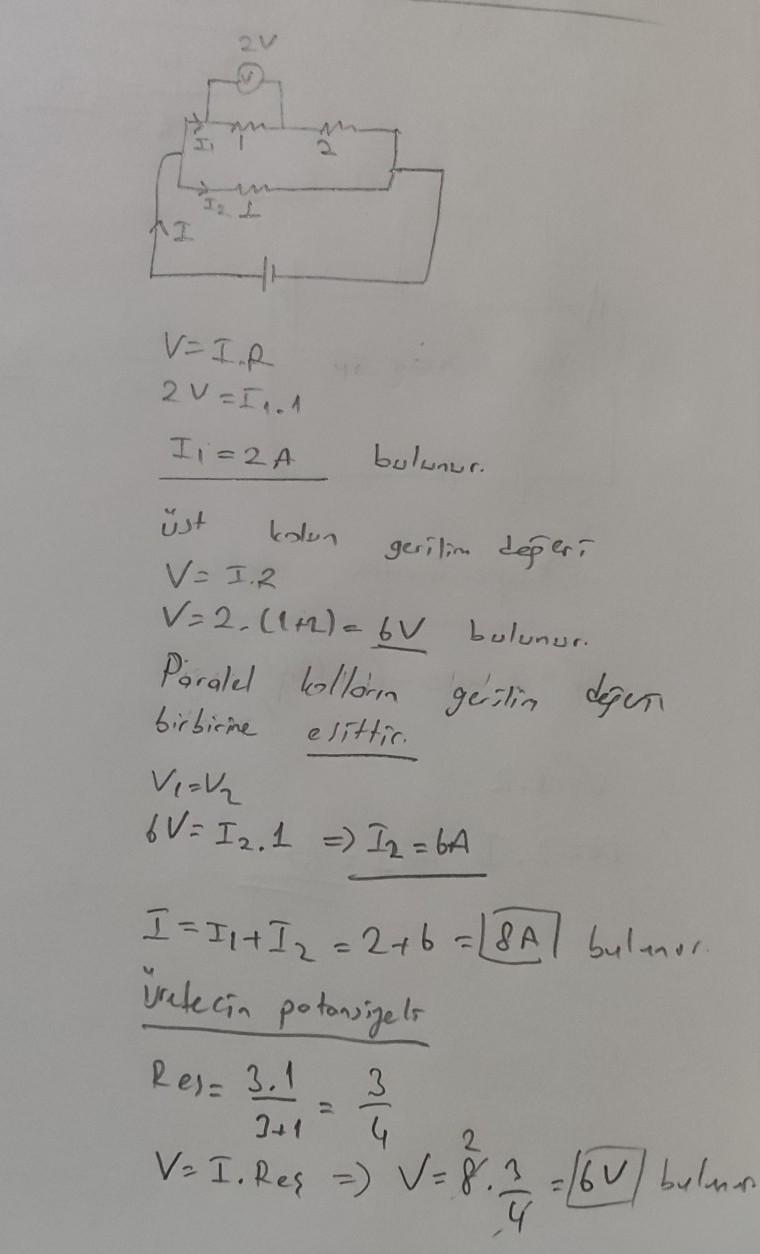 2V
V
I₁ 1 2
I₂ 1
I
V=I.R
2V=I₁.1
I₁=2A bulunur.
üst kolun gerilim değeri
V=I.R
V=2.(1+2)=6V bulunur.
Paralel kolların gerilim değeri
birbirine eşittir.
V₁=V₂
6V=I₂.1 => I₂=6A
I=I₁+I₂=2+6=8A bulunur.
üretecin potansiyeli
Reş=3.1/3+1=3/4
V=I.Reş => V=8.3/4=6V bulunur
2